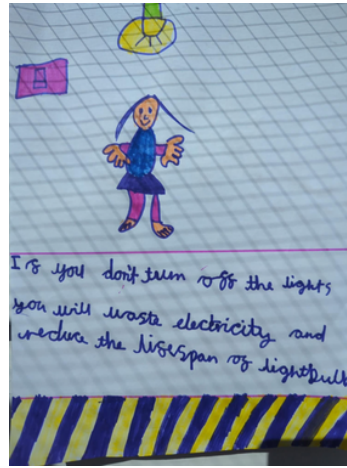 If you don't turn off the lights
you will waste electricity and
reduce the lifespan of lightbulb